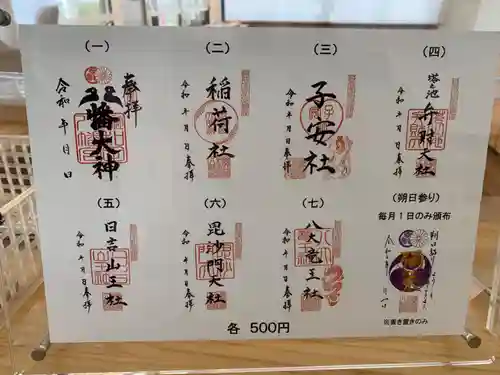 (一)
奉拝
八幡大神
令和 年 月 日
(二)
稲荷社
令和 年 月 日 奉拝
(三)
子安社
令和 年 月 日 奉拝
(四)
塔之池
弁財天社
令和 年 月 日 奉拝
(五)
日吉山王社
令和 年 月 日 奉拝
(六)
毘沙門天社
令和 年 月 日 奉拝
(七)
八大竜王社
令和 年 月 日 奉拝
(朔日参り)
毎月1日のみ頒布
※書き置きのみ
各 500円